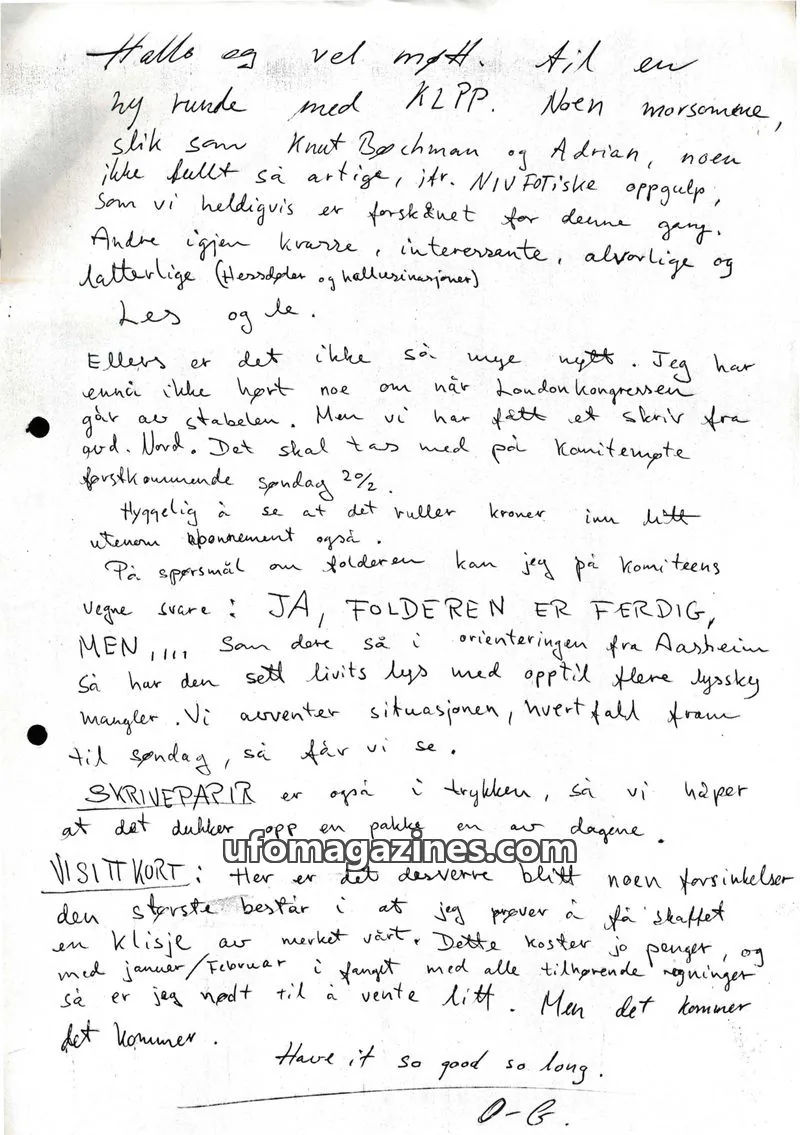 Hallo og vel møtt. til en
ny runde med KLPP. Noen morsomme,
slik som Knut Bøchman og Adrian, noen
ikke fullt så artige, jfr. NIVFOTiske oppgulp,
Som vi heldigvis er forskånet for denne gang.
Andre igjen krasse, interessante, alvorlige og
latterlige (Hessdøler og hallusinasjoner)
Les og le.
Ellers er det ikke så mye nytt. Jeg har
ennå ikke hørt noe om når Londonkongressen
går av stabelen. Men vi har fått et skriv fra
avd. Nord. Det skal tas med på Komitemøte
førstkommende søndag 20/2.
Hyggelig å se at det ruller kroner inn litt
utenom abonnement også.
På spørsmål om folderen kan jeg på komiteens
vegne svare: JA, FOLDEREN ER FERDIG,
MEN,,,, Som dere så i orienteringen fra Aasheim
så har den sett livits lys med opptil flere lyssky
mangler. Vi avventer situasjonen, hvertfall fram
til søndag, så får vi se.
SKRIVEPAPIR er også i trykken, så vi håper
at det dukker opp en pakke en av dagene.
ufomagazines.com
VISITTKORT: Her er det desverre blitt noen forsinkelser
den største består i at jeg prøver å få skaffet
en klisje av merket vårt. Dette koster jo penger, og
med januar/Februar i fanget med alle tilhørende regninger
så er jeg nødt til å vente litt. Men det kommer
det kommer.
Have it so good so long.
O-G.